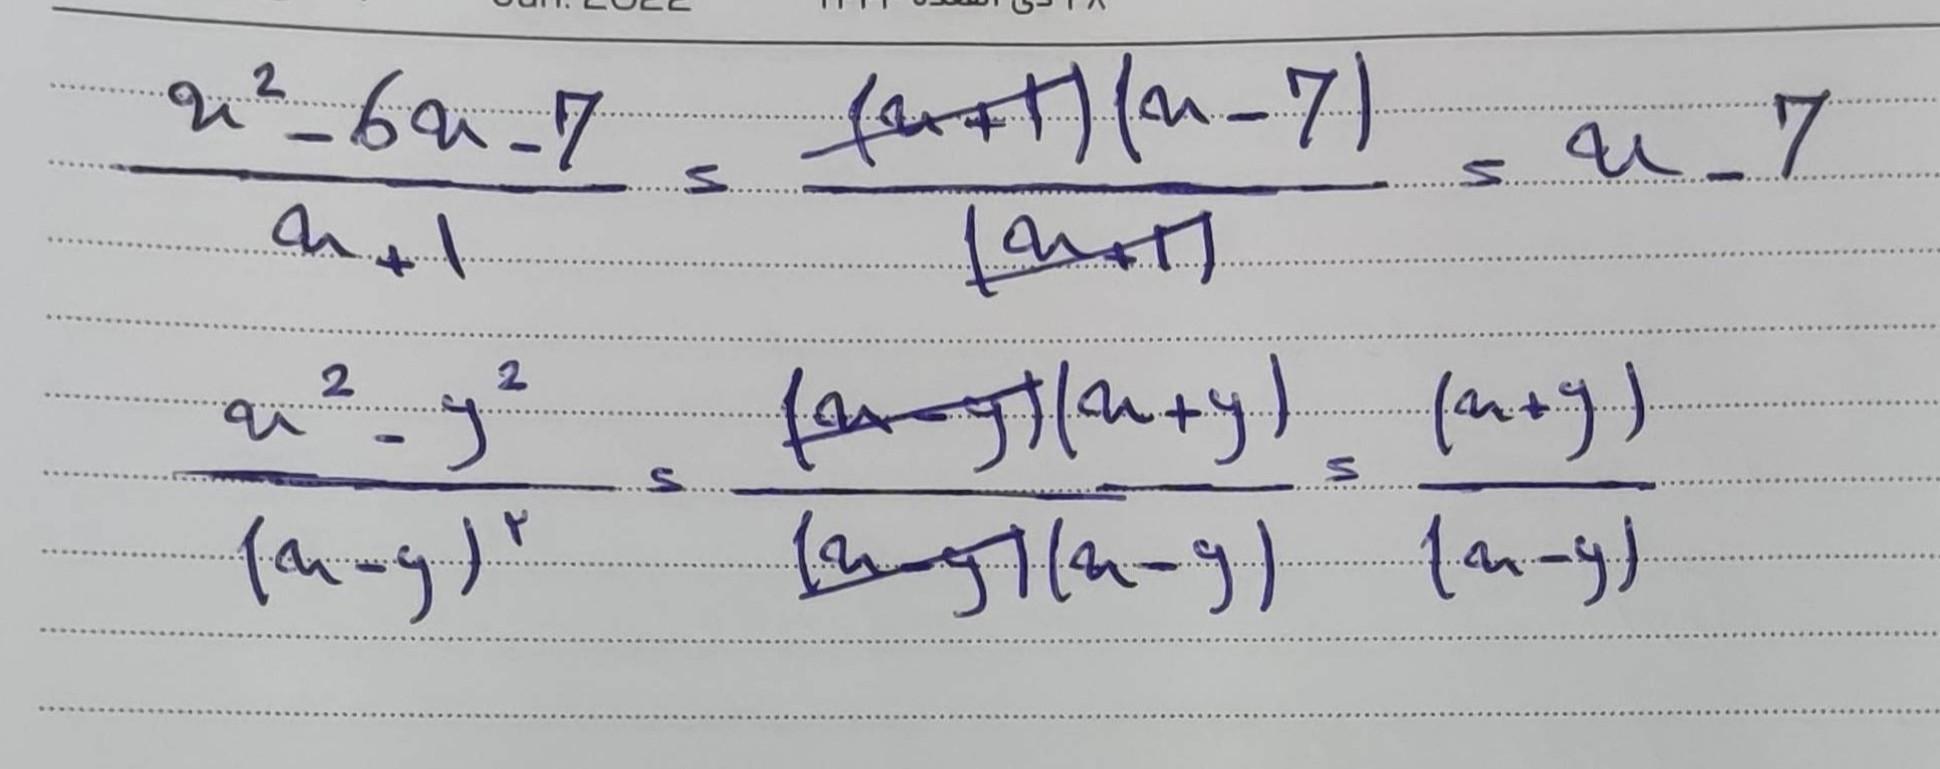 x² - 6x - 7 / x + 1 = (x+1)(x-7) / (x+1) = x - 7
x² - y² / (x-y)۲ = (x-y)(x+y) / (x-y)(x-y) = (x+y) / (x-y)